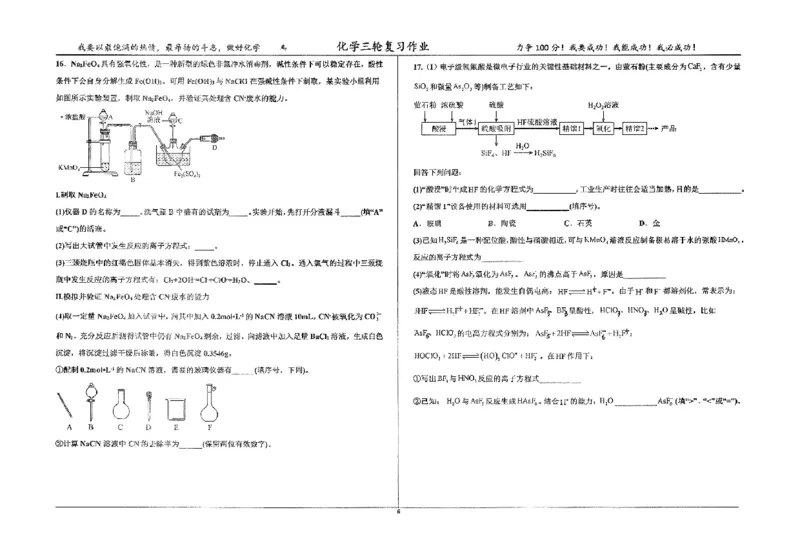 我要以最饱满的热情，最昂扬的斗志，做好化学
化学三轮复习作业
力争 100 分！我要成功！我能成功！我必成功！
16．Na₂FeO₄具有强氧化性，是一种新型的绿色非氯净水消毒剂，碱性条件下可以稳定存在，酸性
条件下会自身分解生成 Fe(OH)₃。可用 Fe(OH)₃与 NaClO 在强碱性条件下制取，某实验小组利用
如图所示实验装置，制取 Na₂FeO₄，并验证其处理含 CN⁻废水的能力。
浓盐酸
A
NaOH
溶液
C
D
KMnO₄
B
Fe₂(SO₄)₃
Ⅰ.制取 Na₂FeO₄
(1)仪器 D 的名称为_____。洗气瓶 B 中盛有的试剂为_____。实验开始，先打开分液漏斗_____(填“A”
或“C”)的活塞。
(2)写出大试管中发生反应的离子方程式：_____。
(3)三颈烧瓶中的红褐色固体基本消失，得到紫色溶液时，停止通入 Cl₂。通入氯气的过程中三颈烧
瓶中发生反应的离子方程式有：Cl₂+2OH⁻=Cl⁻+ClO⁻+H₂O、_____。
Ⅱ.模拟并验证 Na₂FeO₄处理含 CN⁻废水的能力
(4)取一定量 Na₂FeO₄加入试管中，向其中加入 0.2mol•L⁻¹的 NaCN 溶液 10mL，CN⁻被氧化为 CO₃²⁻
和 N₂。充分反应后测得试管中仍有 Na₂FeO₄剩余，过滤，向滤液中加入足量 BaCl₂溶液，生成白色
沉淀，将沉淀过滤干燥后称量，得白色沉淀 0.3546g。
①配制 0.2mol•L⁻¹的 NaCN 溶液，需要的玻璃仪器有_____(填序号，下同)。
A B C D E F
②计算 NaCN 溶液中 CN⁻的去除率为_____(保留两位有效数字)。
17．（1）电子级氢氟酸是微电子行业的关键性基础材料之一，由萤石粉(主要成分为CaF₂，含有少量
SiO₂和微量As₂O₃等)制备工艺如下：
萤石粉 浓硫酸 硫酸 H₂O₂溶液
酸浸 气体1 硫酸吸附 HF硫酸溶液 精馏1 氧化 精馏2 产品
SiF₄、HF H₂O H₂SiF₆
回答下列问题：
(1)“酸浸”时生成HF的化学方程式为__________，工业生产时往往会适当加热，目的是__________。
(2)“精馏 1”设备使用的材料可选用__________(填序号)。
A．玻璃 B．陶瓷 C．石英 D．金
(3)已知H₂SiF₆是一种配位酸，酸性与硫酸相近，可与KMnO₄溶液反应制备极易溶于水的强酸HMnO₄，
反应的离子方程式为__________
(4)“氧化”时将AsF₃氧化为AsF₅。AsF₅的沸点高于AsF₃，原因是__________
(5)液态HF是酸性溶剂，能发生自偶电离：HF⇌H⁺+F⁻，由于H⁺和F⁻都溶剂化，常表示为：
3HF⇌H₂F⁺+HF₂⁻。在HF溶剂中AsF₅、BF₃呈酸性，HClO₄、HNO₃、H₂O呈碱性，比如
AsF₅、HClO₄的电离方程式分别为：AsF₅+2HF⇌AsF₆⁻+H₂F⁺；
HOClO₃+2HF⇌(HO)₂ClO₂⁺+HF₂⁻。在HF作用下：
①写出BF₃与HNO₃反应的离子方程式__________
②已知：H₂O与AsF₅反应生成HAsF₆。结合H⁺的能力：H₂O__________AsF₆⁻(填“>”、“<”或“=”)。
6